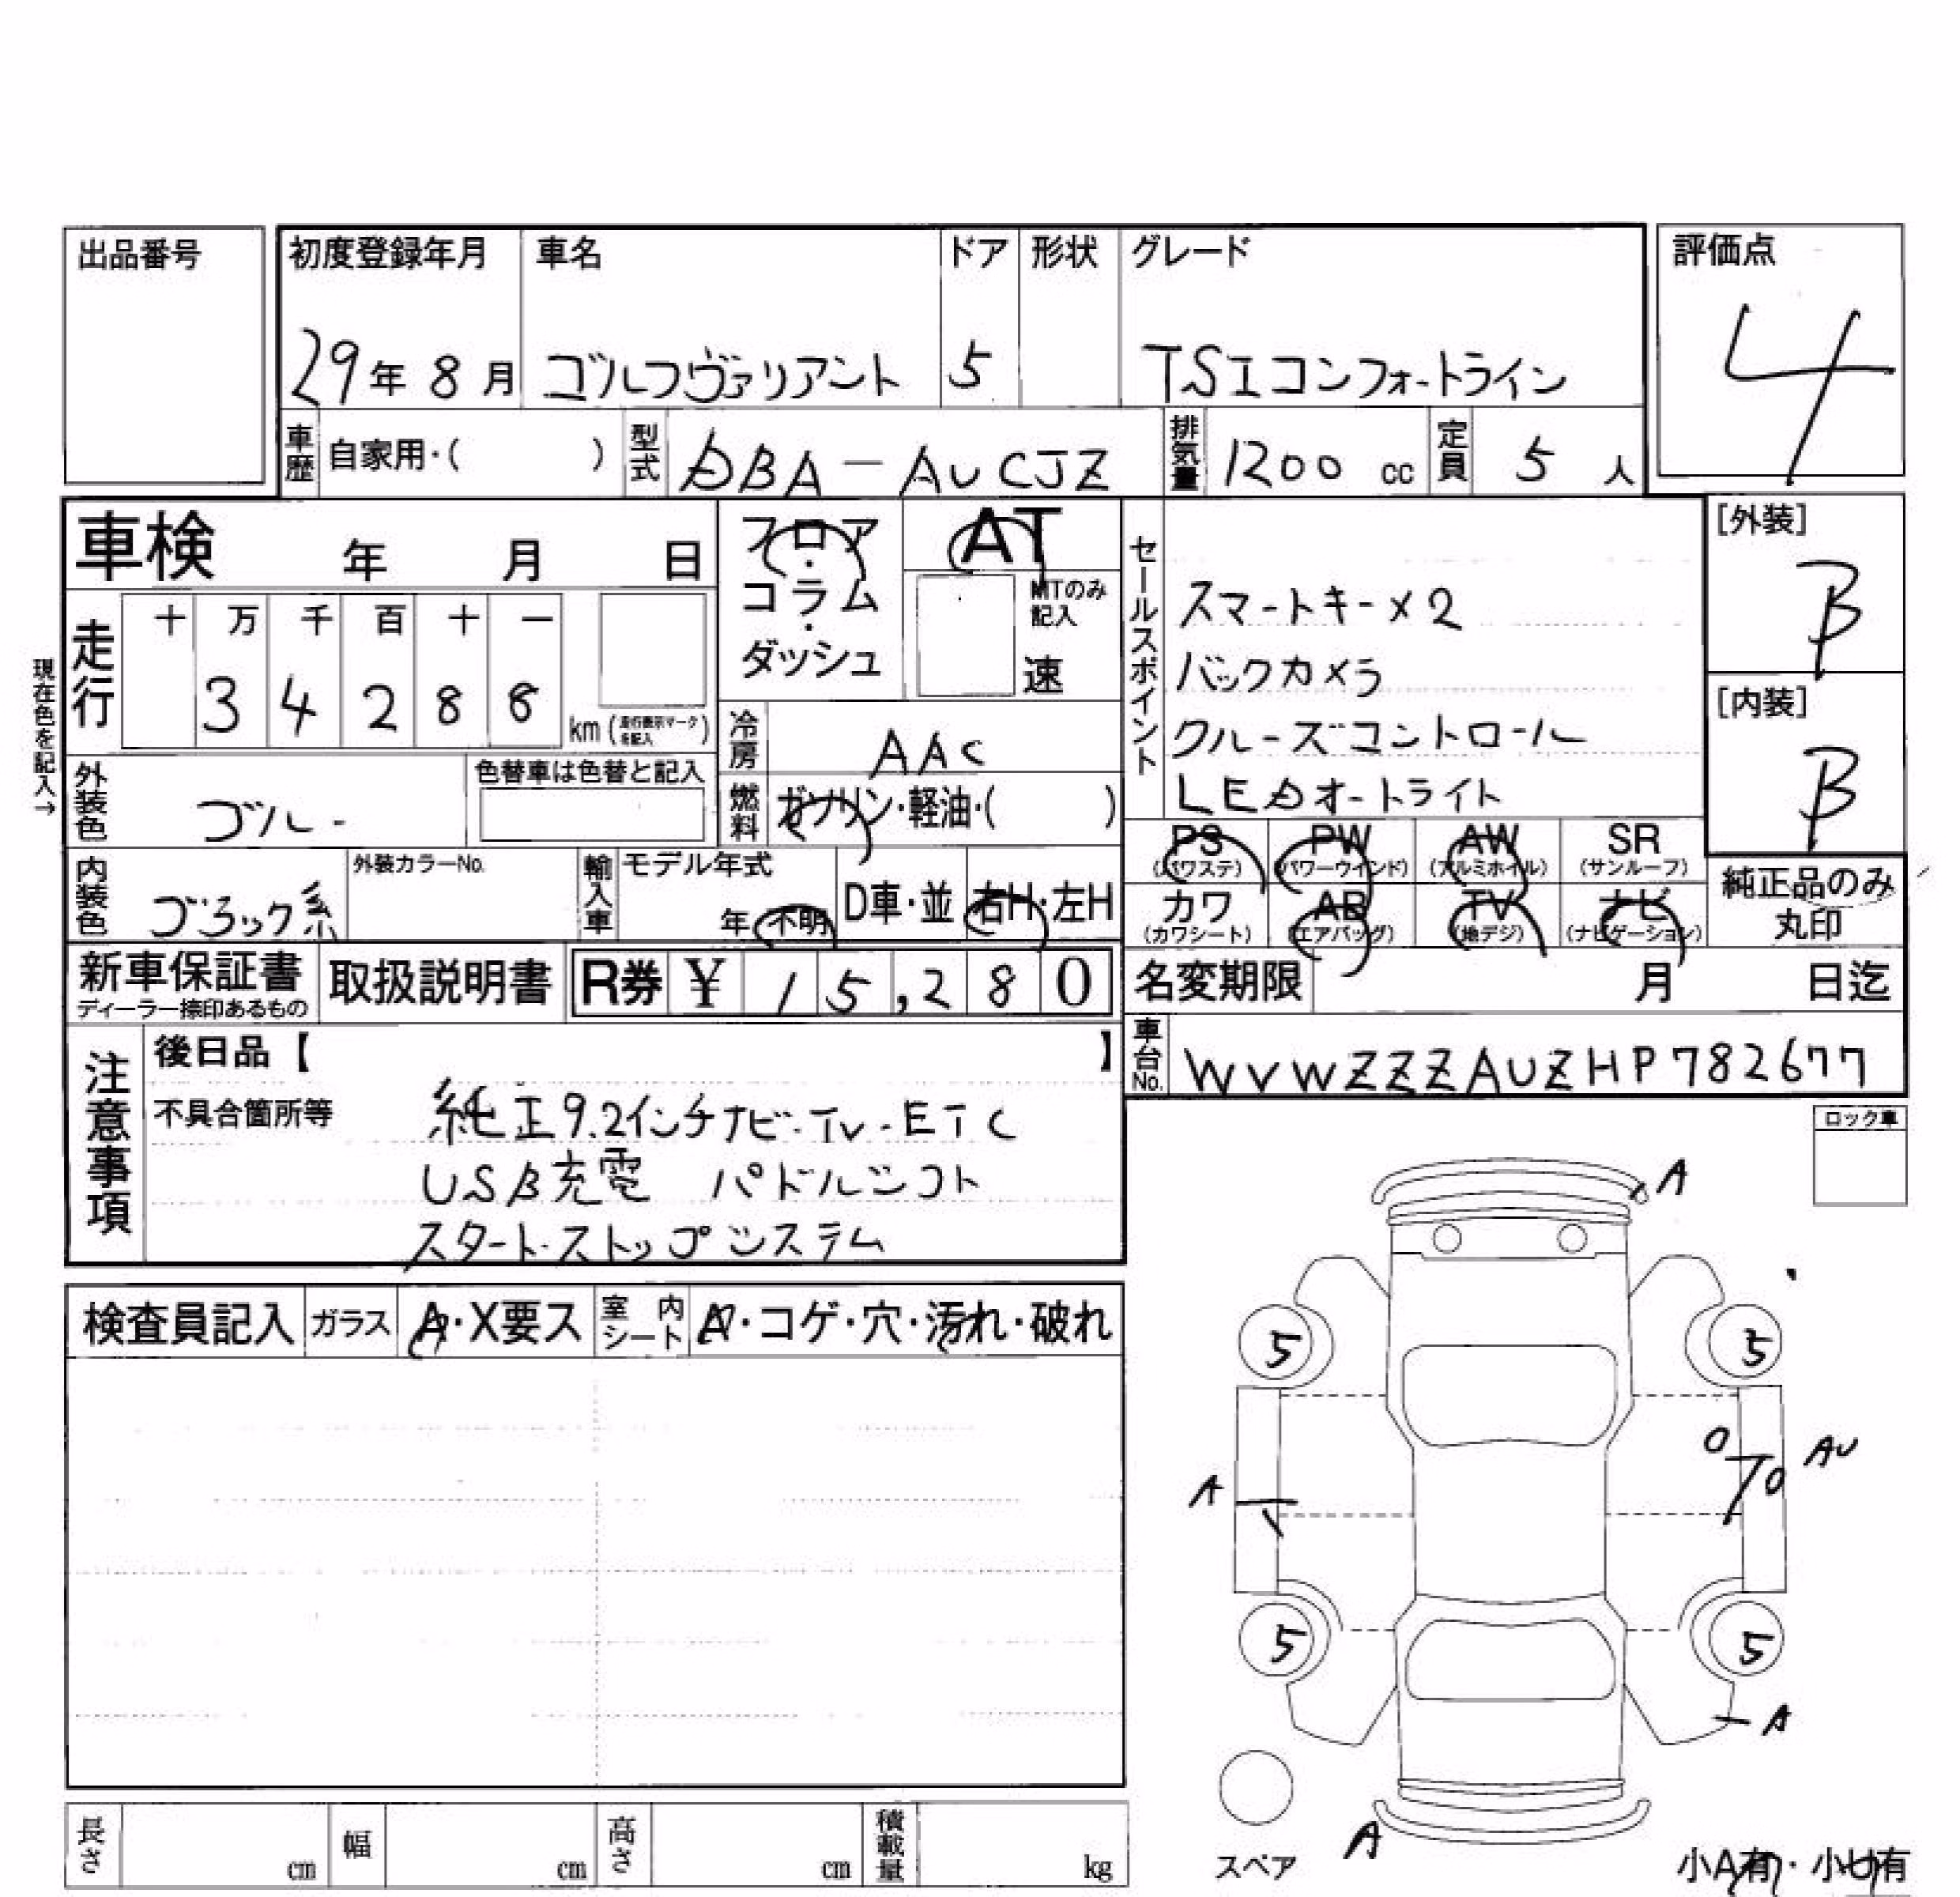 出品番号
初度登録年月 車名 ドア 形状 グレード 評価点
29年 8月 ゴルフヴァリアント 5 TSIコンフォートライン 4
車歴 自家用・( ) 型式 DBA-AUCJZ 排気量 1200 cc 定員 5 人
車検 年 月 日
フロア・コラム・ダッシュ
AT
MTのみ記入
速
セールスポイント
スマートキー×2
バックカメラ
クルーズコントロール
LEDオートライト
[外装]
B
[内装]
B
現在色を記入→
走行 十 万 千 百 十 一
3 4 2 8 8
km (走行表示マーク を記入)
冷房 AAC
燃料 ガソリン・軽油・( )
外装色 ブルー
色替車は色替と記入
内装色 ブラック系
外装カラーNo.
輸入車 モデル年式
年・不明
D車・並
右H・左H
PS (パワステ) PW (パワーウインド) AW (アルミホイル) SR (サンルーフ)
カワ (カワシート) AB (エアバッグ) TV (地デジ) ナビ (ナビゲーション)
純正品のみ
丸印
新車保証書
ディーラー捺印あるもの
取扱説明書
R券 ¥ 15,280
名変期限 月 日迄
車台No. WVWZZZAUZHP782677
注意事項
後日品【 】
不具合箇所等
純正9.2インチナビ・TV・ETC
USB充電 パドルシフト
スタート・ストップシステム
ロック車
検査員記入 ガラス A・X要ス 室内シート A・コゲ・穴・汚れ・破れ
A
5 5
A AU
5 5
A
A
スペア
小A有・小U有
長さ cm 幅 cm 高さ cm 積載量 kg